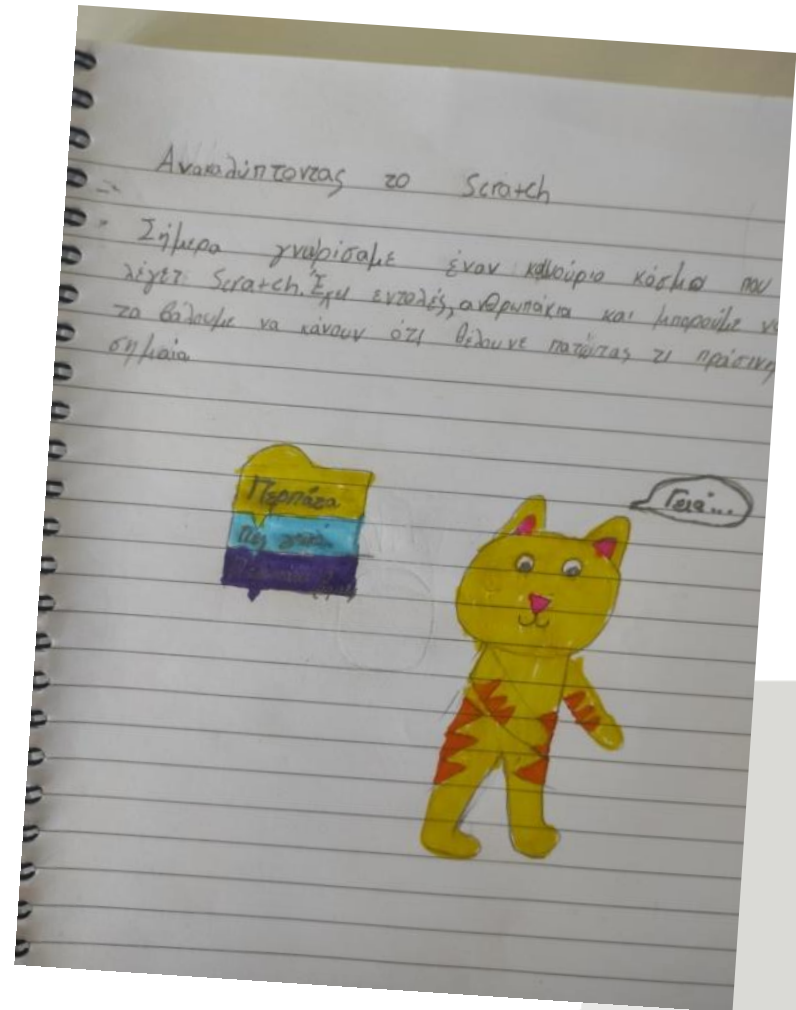 Ανακαλύπτοντας το Scratch
Σήμερα γνωρίσαμε έναν καινούριο κόσμο που
λέγετ Scratch. Έχει εντολές, ανθρωπάκια και μπορούμε ν
τα βάλουμε να κάνουν ότι θέλουνε πατώτας τι πράσινη
σημαία
Περπάτα
Πες γειά...
Γειά...